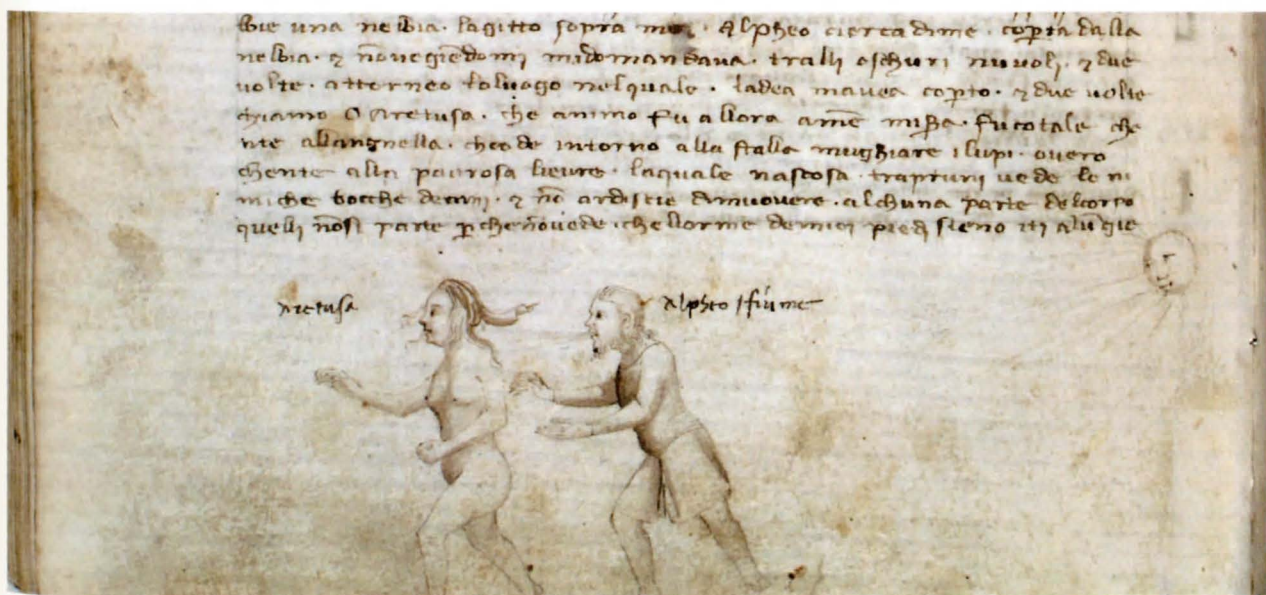 bie una nebbia · la gitto sopra me · Alpheo cierca dime · cop̄ta dalla
nebbia · ⁊ nō vegiēdomi midomandava · tralli oschuri nuvoli · ⁊ due
volte · attorneo loluogo nelquale · ladea mavea cop̄to · ⁊ due volte
chiamo O Aretusa · che animo fu allora amē miss̄a · fu cotale che
nte allangnella · che ode intorno alla stalla mughiare i lupi · overo
chente alla paurosa lievre · laquale nascosa · trapruni vede le ni
miche bocche decani · ⁊ nō ardiscie dimuovere · alchuna parte delcorpo
quelli nōsi parte ꝑche nō vede · che llorme demiei piedi sieno iti alūgie
Aretusa
Alpheo ifiume